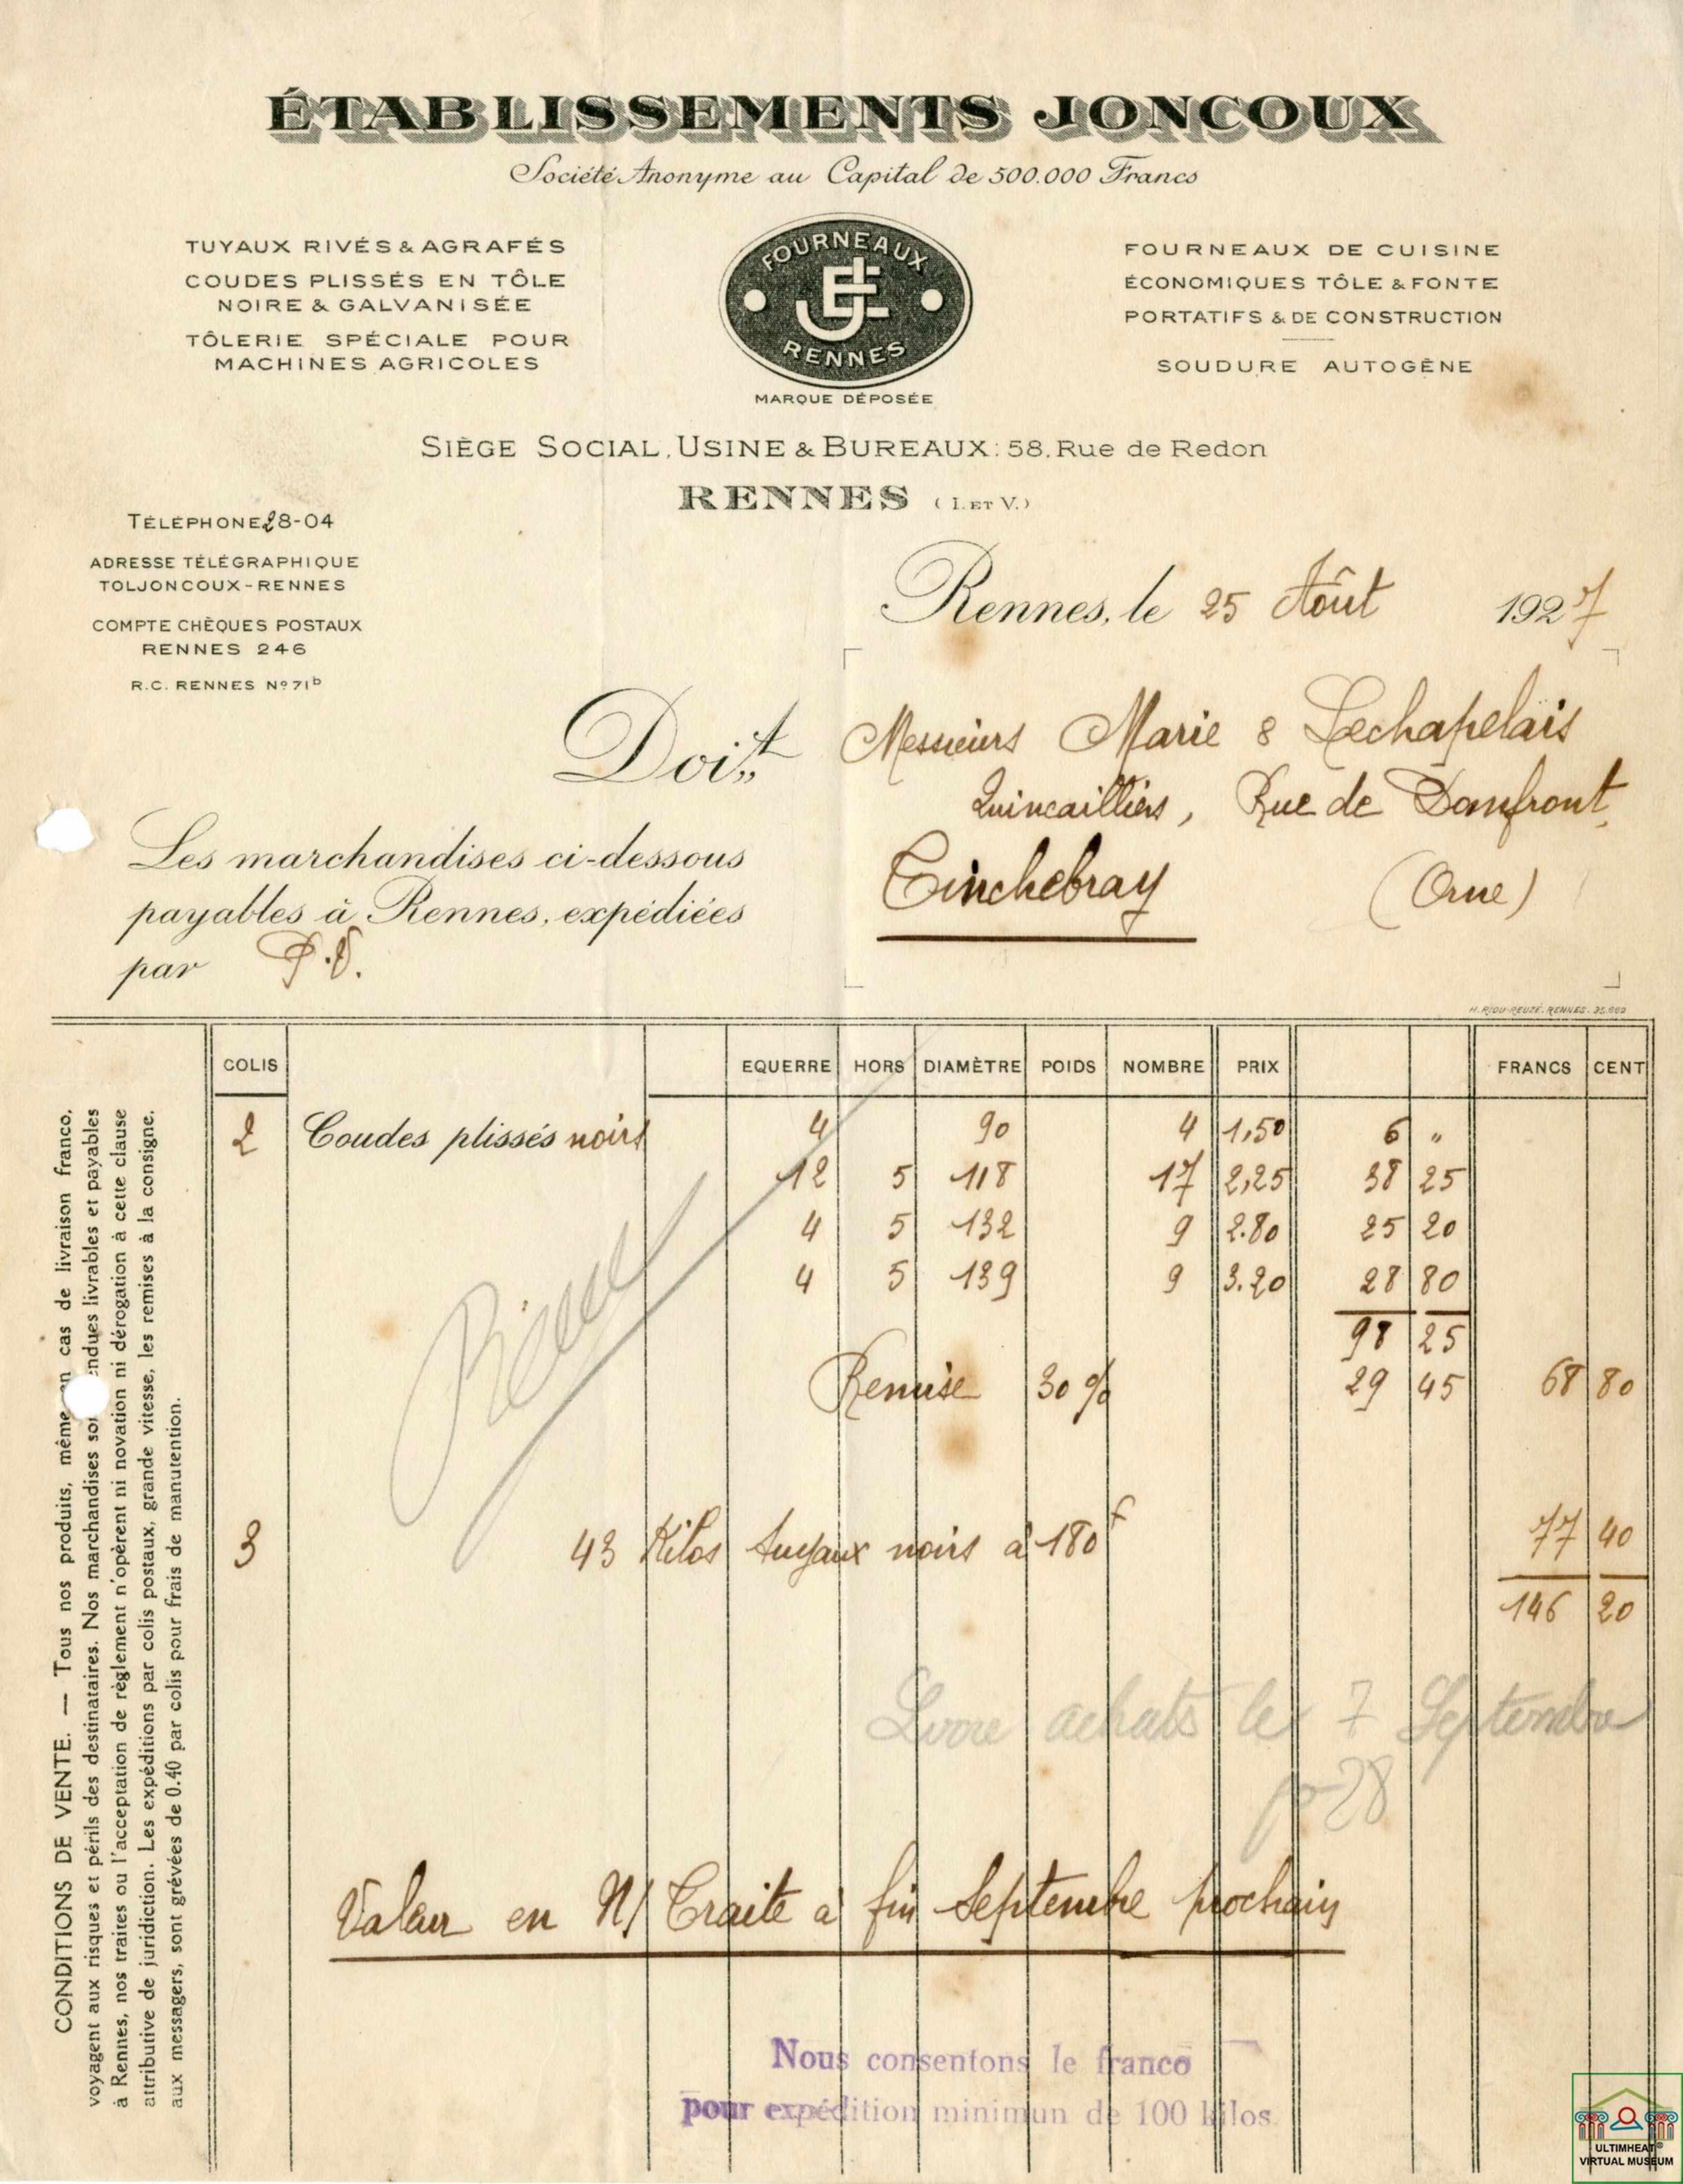 ÉTABLISSEMENTS JONCOUX
Société Anonyme au Capital de 500.000 Francs
TUYAUX RIVÉS & AGRAFÉS
COUDES PLISSÉS EN TÔLE
NOIRE & GALVANISÉE
TÔLERIE SPÉCIALE POUR
MACHINES AGRICOLES
FOURNEAUX
JE
RENNES
MARQUE DÉPOSÉE
FOURNEAUX DE CUISINE
ÉCONOMIQUES TÔLE & FONTE
PORTATIFS & DE CONSTRUCTION
SOUDURE AUTOGÈNE
SIÈGE SOCIAL, USINE & BUREAUX: 58, Rue de Redon
RENNES (I. ET V.)
TÉLÉPHONE 28-04
ADRESSE TÉLÉGRAPHIQUE
TOLJONCOUX-RENNES
COMPTE CHÈQUES POSTAUX
RENNES 246
R.C. RENNES Nº 71b
Rennes, le 25 Aôut 1927
Doit
Messieurs Marie & Lechapelais
Quincailliers, Rue de Domfront,
Tinchebray (Orne)
Les marchandises ci-dessous
payables à Rennes, expédiées
par P.V.
H. RIOU-REUZÉ. RENNES. 25.669
COLIS EQUERRE HORS DIAMÈTRE POIDS NOMBRE PRIX FRANCS CENT
2 Coudes plissés noirs 4 90 4 1,50 6 "
12 5 118 17 2,25 38 25
4 5 132 9 2.80 25 20
4 5 139 9 3.20 28 80
98 25
Remise 30% 29 45 68 80
3 43 Kilos tuyaux noirs à 180f 77 40
146 20
Livre achats le 7 Septembre
p 28
Valeur en N/ Traite à fin Septembre prochain
Nous consentons le franco
pour expédition minimun de 100 kilos
CONDITIONS DE VENTE. — Tous nos produits, même en cas de livraison franco,
voyagent aux risques et périls des destinataires. Nos marchandises sont vendues livrables et payables
à Rennes, nos traites ou l'acceptation de règlement n'opèrent ni novation ni dérogation à cette clause
attributive de juridiction. Les expéditions par colis postaux, grande vitesse, les remises à la consigne,
aux messagers, sont grévées de 0.40 par colis pour frais de manutention.
ULTIMHEAT®
VIRTUAL MUSEUM